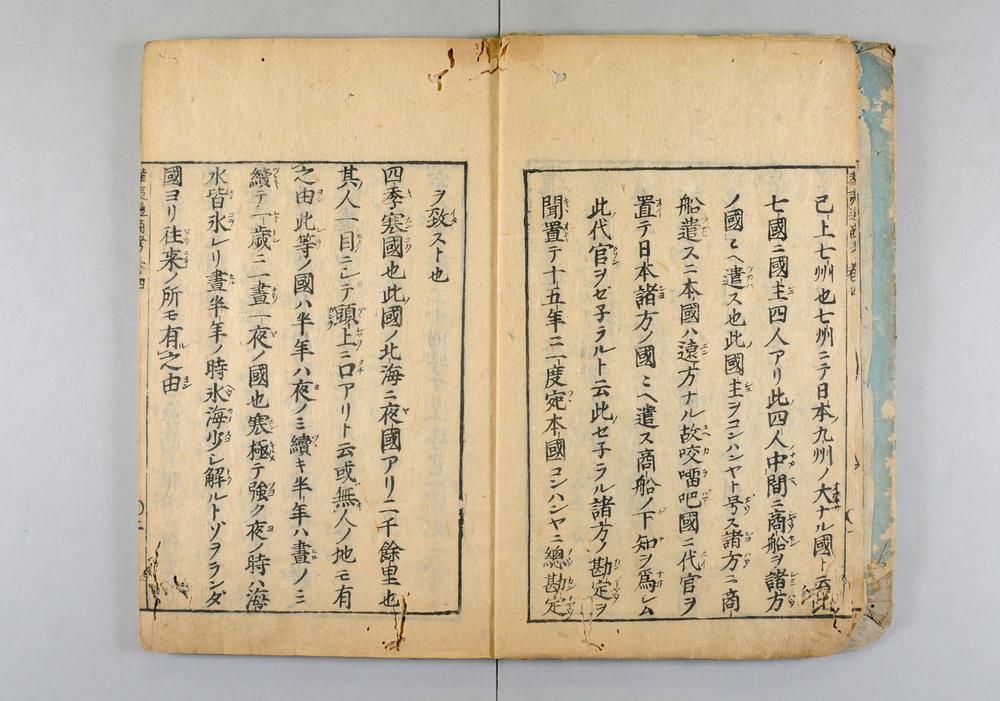 已上七州也七州ニテ日本ノ九州ノ大ナル國ト云此
七國ニ國主四人アリ此四人中間ニ商船ヲ諸方
ノ國ミヘ遣ス也此國主ヲコンハンヤト号ス諸方ニ商
船遣スニ本國ハ遠方ナル故咬𠺕吧國ニ代官ヲ
置テ日本諸方ノ國ミヘ遣ス商船ノ下知ヲ爲シム
此代官ヲゼ子ラルト云此ゼ子ラル諸方ノ勘定ヲ
聞置テ十五年ニ一度宛本國コンハンヤニ總勘定
ヲ致スト也
四季寒國也此國ノ北海ニ夜國アリ二千餘里也
其人一目ニシテ頭上ニ口アリト云或無人ノ地モ有
之由此等ノ國ハ半年ハ夜ノミ續キ半年ハ晝ノミ
續テ一歳ニ一晝一夜ノ國也寒極テ強ク夜ノ時ハ海
水皆氷レリ晝半年ノ時氷海少シ解ルトゾヲランダ
國ヨリ往来ノ所モ有之由